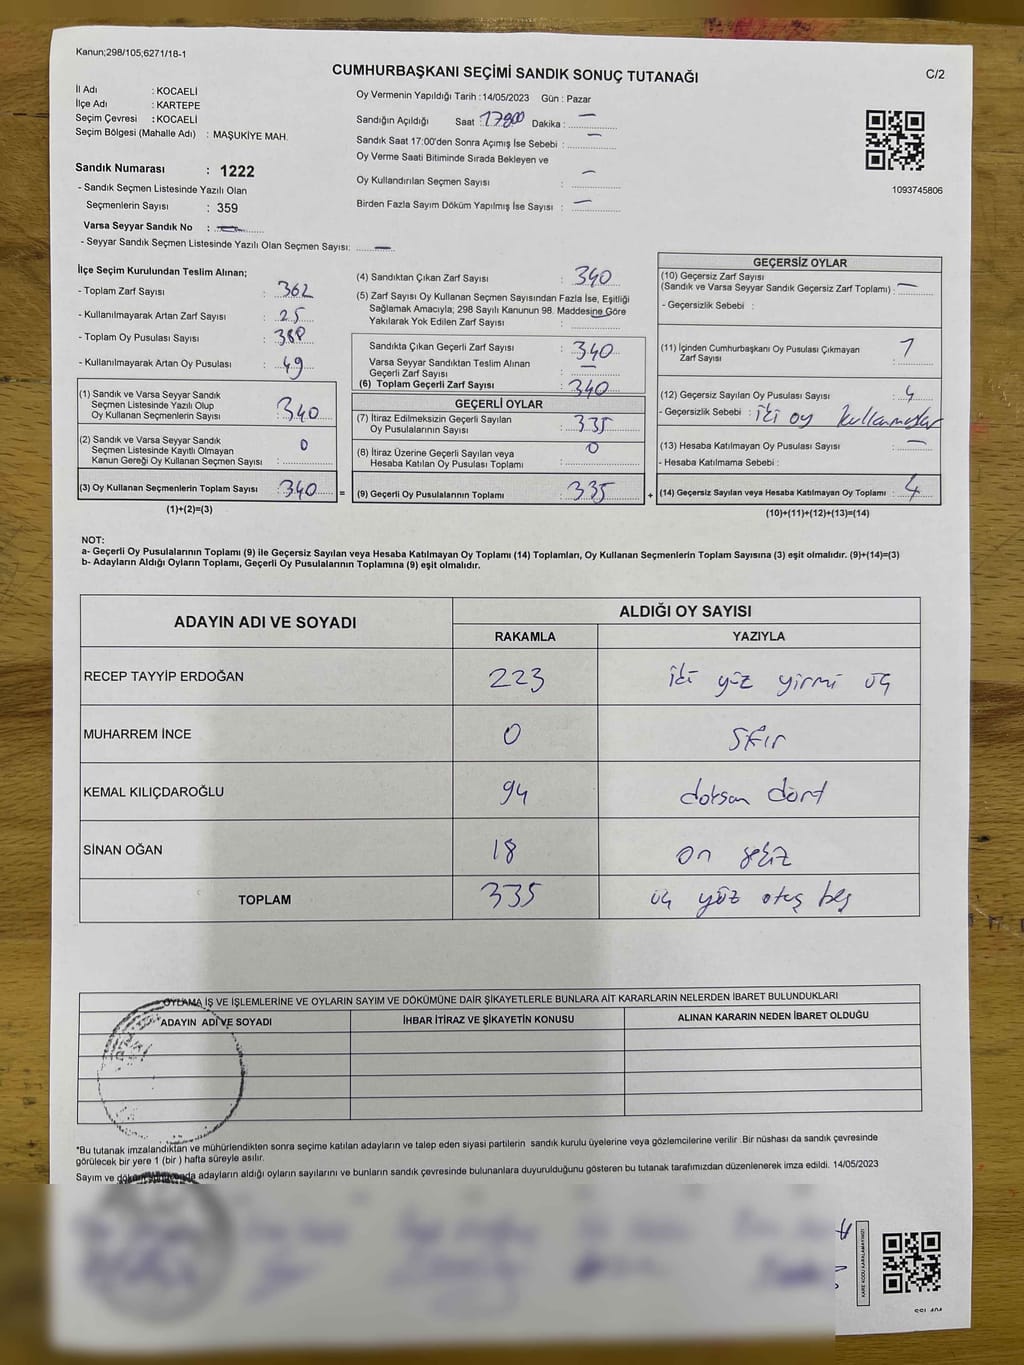 Kanun;298/105;6271/18-1
CUMHURBAŞKANI SEÇİMİ SANDIK SONUÇ TUTANAĞI
C/2
İl Adı : KOCAELİ
İlçe Adı : KARTEPE
Seçim Çevresi : KOCAELİ
Seçim Bölgesi (Mahalle Adı) : MAŞUKİYE MAH.
Sandık Numarası : 1222
- Sandık Seçmen Listesinde Yazılı Olan
Seçmenlerin Sayısı : 359
Varsa Seyyar Sandık No :
- Seyyar Sandık Seçmen Listesinde Yazılı Olan Seçmen Sayısı: —
Oy Vermenin Yapıldığı Tarih :14/05/2023 Gün : Pazar
Sandığın Açıldığı Saat : Dakika : —
Sandık Saat 17:00'den Sonra Açımış İse Sebebi : —
Oy Verme Saati Bitiminde Sırada Bekleyen ve
Oy Kullandırılan Seçmen Sayısı : —
Birden Fazla Sayım Döküm Yapılmış İse Sayısı : —
1093745806
İlçe Seçim Kurulundan Teslim Alınan;
- Toplam Zarf Sayısı : 362
- Kullanılmayarak Artan Zarf Sayısı : 25
- Toplam Oy Pusulası Sayısı :
- Kullanılmayarak Artan Oy Pusulası : 49
(1) Sandık ve Varsa Seyyar Sandık
Seçmen Listesinde Yazılı Olup
Oy Kullanan Seçmenlerin Sayısı : 340
(2) Sandık ve Varsa Seyyar Sandık
Seçmen Listesinde Kayıtlı Olmayan
Kanun Gereği Oy Kullanan Seçmen Sayısı : 0
(3) Oy Kullanan Seçmenlerin Toplam Sayısı : 340
(1)+(2)=(3)
=
(4) Sandıktan Çıkan Zarf Sayısı : 340
(5) Zarf Sayısı Oy Kullanan Seçmen Sayısından Fazla İse, Eşitliği
Sağlamak Amacıyla; 298 Sayılı Kanunun 98. Maddesine Göre
Yakılarak Yok Edilen Zarf Sayısı :
Sandıkta Çıkan Geçerli Zarf Sayısı : 340
Varsa Seyyar Sandıktan Teslim Alınan
Geçerli Zarf Sayısı : —
(6) Toplam Geçerli Zarf Sayısı : 340
GEÇERLİ OYLAR
(7) İtiraz Edilmeksizin Geçerli Sayılan
Oy Pusulalarının Sayısı : 335
(8) İtiraz Üzerine Geçerli Sayılan veya
Hesaba Katılan Oy Pusulası Toplamı : 0
(9) Geçerli Oy Pusulalarının Toplamı : 335
+
GEÇERSİZ OYLAR
(10) Geçersiz Zarf Sayısı
(Sandık ve Varsa Seyyar Sandık Geçersiz Zarf Toplamı) : —
- Geçersizlik Sebebi :
(11) İçinden Cumhurbaşkanı Oy Pusulası Çıkmayan
Zarf Sayısı : 1
(12) Geçersiz Sayılan Oy Pusulası Sayısı : 4
- Geçersizlik Sebebi : iki oy kullanmışlar
(13) Hesaba Katılmayan Oy Pusulası Sayısı : —
- Hesaba Katılmama Sebebi :
(14) Geçersiz Sayılan veya Hesaba Katılmayan Oy Toplamı : 4
(10)+(11)+(12)+(13)=(14)
NOT:
a- Geçerli Oy Pusulalarının Toplamı (9) ile Geçersiz Sayılan veya Hesaba Katılmayan Oy Toplamı (14) Toplamları, Oy Kullanan Seçmenlerin Toplam Sayısına (3) eşit olmalıdır. (9)+(14)=(3)
b- Adayların Aldığı Oyların Toplamı, Geçerli Oy Pusulalarının Toplamına (9) eşit olmalıdır.
ADAYIN ADI VE SOYADI
ALDIĞI OY SAYISI
RAKAMLA YAZIYLA
RECEP TAYYİP ERDOĞAN 223 iki yüz yirmi üç
MUHARREM İNCE 0 Sıfır
KEMAL KILIÇDAROĞLU 94 doksan dört
SİNAN OĞAN 18 on sekiz
TOPLAM 335 üç yüz otuz beş
OYLAMA İŞ VE İŞLEMLERİNE VE OYLARIN SAYIM VE DÖKÜMÜNE DAİR ŞİKAYETLERLE BUNLARA AİT KARARLARIN NELERDEN İBARET BULUNDUKLARI
ADAYIN ADI VE SOYADI İHBAR İTİRAZ VE ŞİKAYETİN KONUSU ALINAN KARARIN NEDEN İBARET OLDUĞU
*Bu tutanak imzalandıktan ve mühürlendikten sonra seçime katılan adayların ve talep eden siyasi partilerin sandık kurulu üyelerine veya gözlemcilerine verilir .Bir nüshası da sandık çevresinde
görülecek bir yere 1 (bir ) hafta süreyle asılır.
Sayım ve dökümü adayların aldığı oyların sayılarını ve bunların sandık çevresinde bulunanlara duyurulduğunu gösteren bu tutanak tarafımızdan düzenlenerek imza edildi. 14/05/2023
KARE KODU KARALAMAYINIZ!